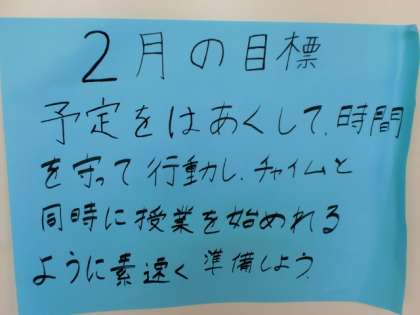 2月の目標
予定をはあくして、時間
を守って行動し、チャイムと
同時に授業を始めれる
ように素速く準備しよう。